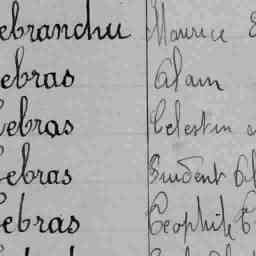 ebranchu Maurice
ebras Alain
Lebras Celestin
Lebras Prudent
Lebras Théophile